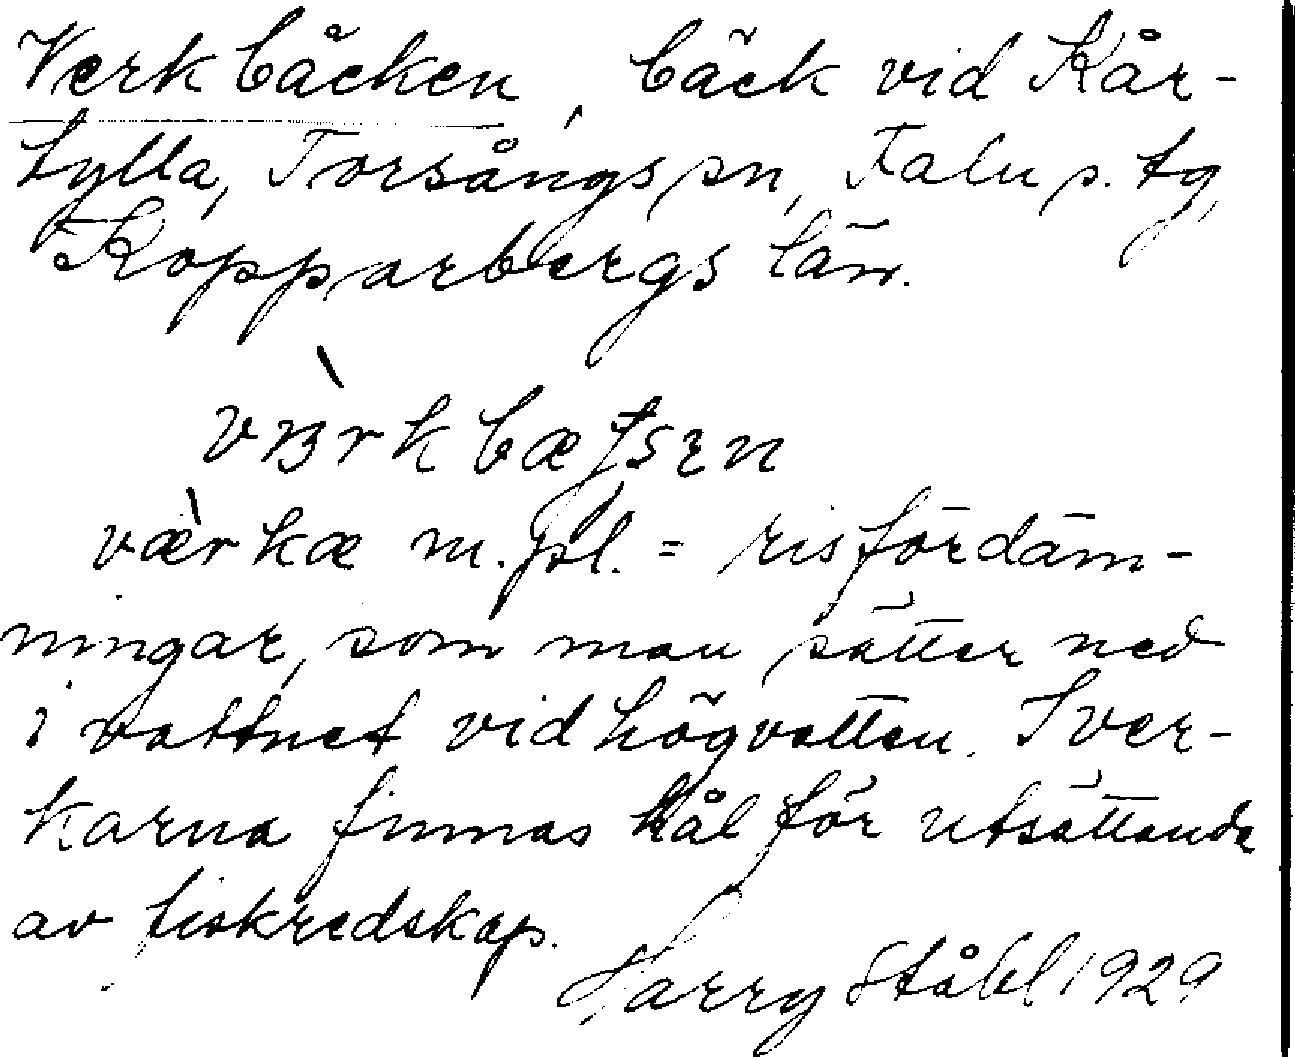 Verkbäcken, bäck vid Kår-
tylla, Torsångs sn, Falu s. tg,
Kopparbergs län.
værkæ m. pl. = risfördäm-
ningar, som man sätter ned
i vattnet vid högvatten. I ver-
karna finnas hål för utsättande
av fiskredskap.
Harry Ståhl 1929